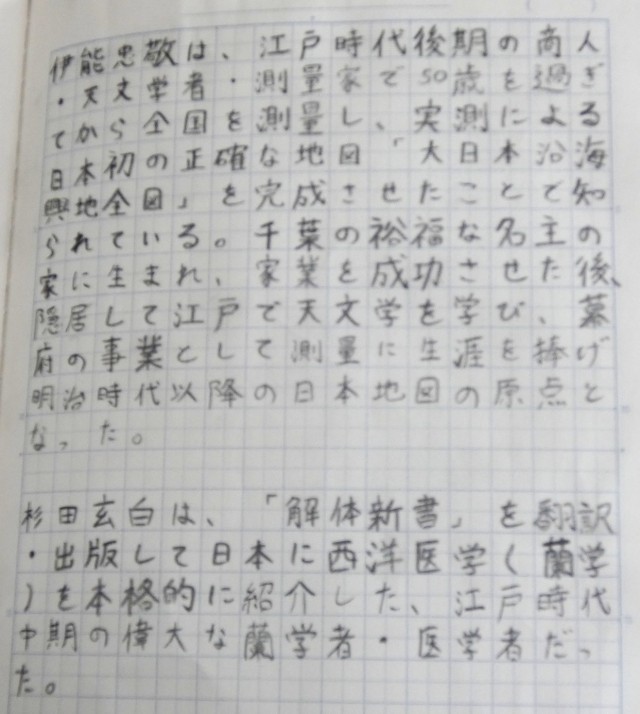 伊能忠敬は、江戸時代後期の商人
・天文学者・測量家で50歳を過ぎ
てから全国を測量し、実測による
日本初の正確な地図「大日本沿海
輿地全図」を完成させたことで知
られている。千葉の裕福な名主の
家に生まれ、家業を成功させた後、
隠居して江戸で天文学を学び、幕
府の事業として測量に生涯を捧げ
明治時代以降の日本地図の原点と
なった。
杉田玄白は、「解体新書」を翻訳
・出版して日本に西洋医学(蘭学
)を本格的に紹介した、江戸時代
中期の偉大な蘭学者・医学者だっ
た。